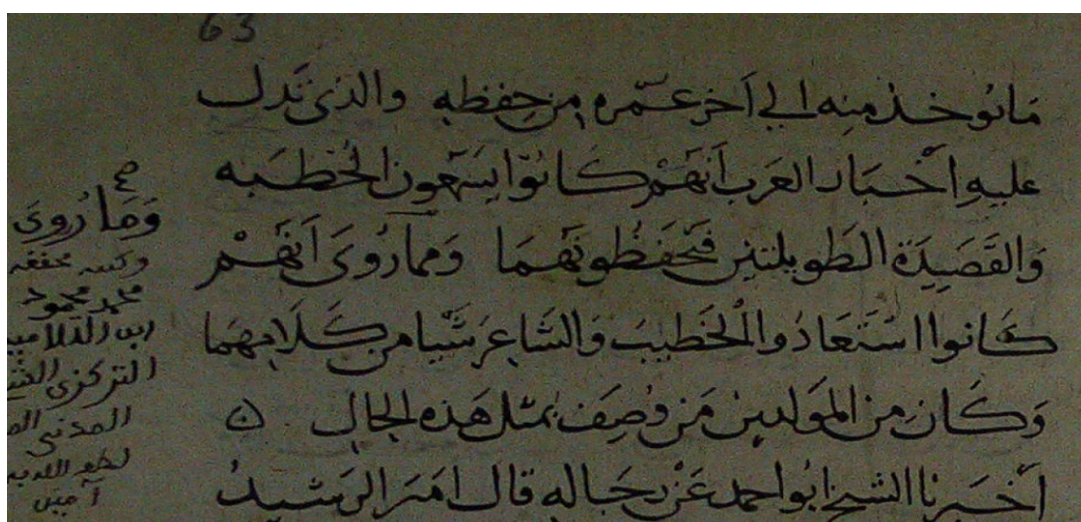 63
مايوخذ منه الي اخر عمره من حفظه والذي تدل
عليه اخبار العرب انهم كانوا يسمعون الخطبه
والقصيدة الطويلتين فيحفظونهما ومما روى انهم
كانوا استعادوا الخطيب والشاعر شيا من كلامهما
وكان من المولدين من وصف بمثل هذه الحال
اخبرنا الشيخ ابو احمد عن رجاله قال امر الرشيد
صح
وما روى
وكتبه محققه
محمد محمود
ابن التلاميد
التركزى
المدنى
لطف الله به
آمين